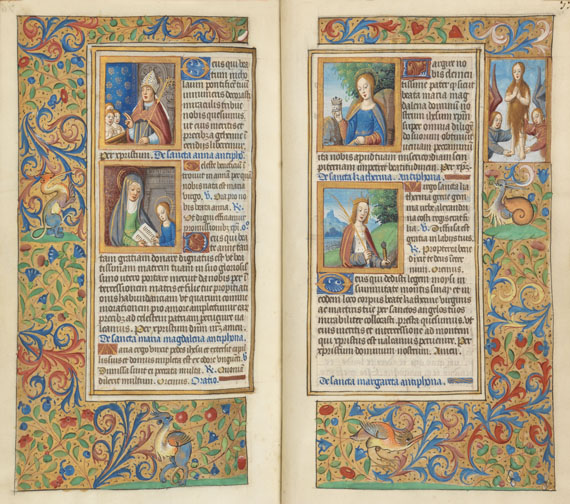 eus qui bea
tum nicho
laum pontificē tuū
innumeris decorasti
miraculis tribue
nobis quesumus.
ut eius meritis et
precibꝰ a gehenne in
cendiis liberemur.
Per xpristum. De sancta anna antipho.
Celeste beneficiū i
troiuit in annā per quā
nobis nata est maria
virgo. V. Ora pro no
bis beata anna. R.
Ut digni efficiamur
promissionibꝰ xpi. or̄o
Deus qui bea
te anne tan
tam gratiam donare dignatus es ut bea
tissimam matrem tuam in suo glorioso
utero portare mereretur da nobis per
intercessionem matris et filie tue propitiati
onis habundanciam ut quarum comme
morationem pio amore amplectimur ear
precibꝰ ad celestem patriam peruenire ua
leamus. Per xpristum dnm nr̄m. amen.
De sancta maria magdalena antiphona.
Maria ergo unxit pedes ihesu et extersit capil
lis suis et domus impleta est ex odore unguēti. V.
Dimissa sunt ei peccata multa. R. Quoniā
dilexit multum. Oremus. Oratio.
Largire no
bis clemen
tissime pater qͥ sicut
beata maria mag
dalena dominū nr̄m
ihesum xpm
super omnia diligē
do suorum obtinuit
ueniam peccaminū
ita nobis apud tuam misericordiam sem
piternam impetret beatitudinem. Per xpm.
De sancta katherina. Antiphona.
Virgo sancta kathe
rina grecie gem
ma urbe alexandri
na costi regis erat fi
lia. V. Diffusa est
gratia in labiis tuis.
R. Propterea bene
dixit te deus in eter
num. Oremus.
Deus qui dedisti legem moysi in
summitate montis sinay et in
eodem loco corpus beate katherine virginis
ac martiris tue per sanctos angelos tuos
mirabiliter collocasti presta quesumus. ut
eius meritis et intercessione ad montem
qui xpristus est ualeamus peruenire. Per
xpristum dominum nostrum. Amen.
De sancta margareta antiphona.